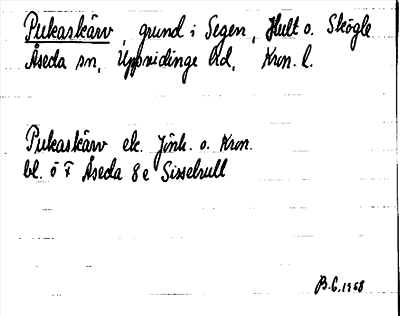 Pukaskärv, grund i Segen, Hult o. Skögle
Åseda sn, Uppvidinge hd, Kron. l.
Pukaskärv ek. Jönk. o. Kron.
bl. ö F Åseda 8e Sisselhult
B.G. 1968